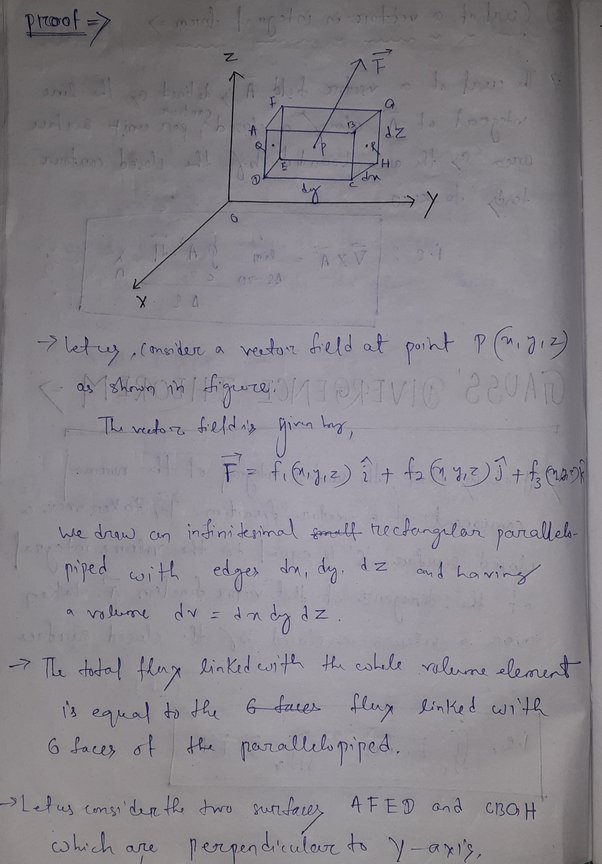 proof ⇒
Z
F⃗
F
G
A
B
dz
Q
P
R
E
H
D
C
dy
dx
Y
O
X
→ Let us, consider a vector field at point P(x, y, z)
as shown in figure.
The vector field is given by,
F⃗ = f₁(x,y,z) î + f₂(x,y,z) ĵ + f₃(x,y,z) k̂
We draw an infinitesimal small rectangular parallelo-
piped with edges dx, dy, dz and having
a volume dv = dx dy dz.
→ The total flux linked with the whole volume element
is equal to the 6 faces flux linked with
6 faces of the parallelopiped.
→ Let us consider the two surfaces AFED and CBGH
which are perpendicular to Y-axis.